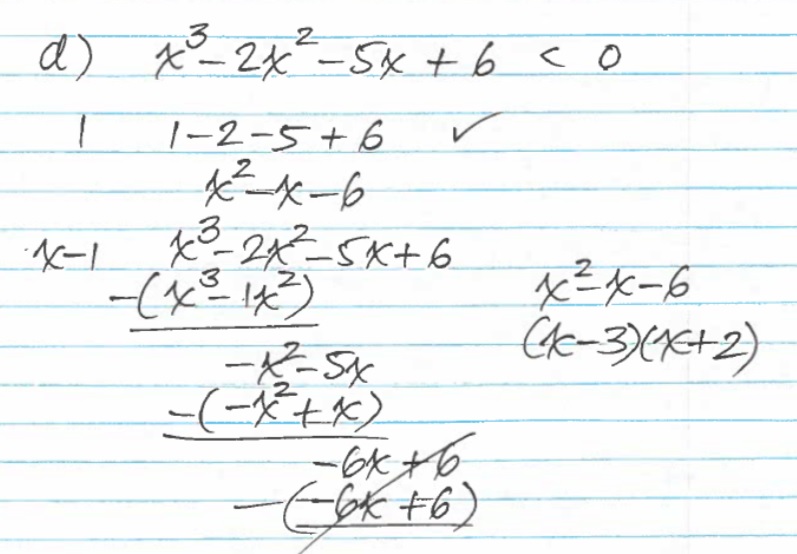 d) x³-2x²-5x+6 < 0
1 1-2-5+6 ✓
x²-x-6
x-1 x³-2x²-5x+6
-(x³-1x²)
-x²-5x
-(-x²+x)
-6x+6
-(-6x+6)
x²-x-6
(x-3)(x+2)